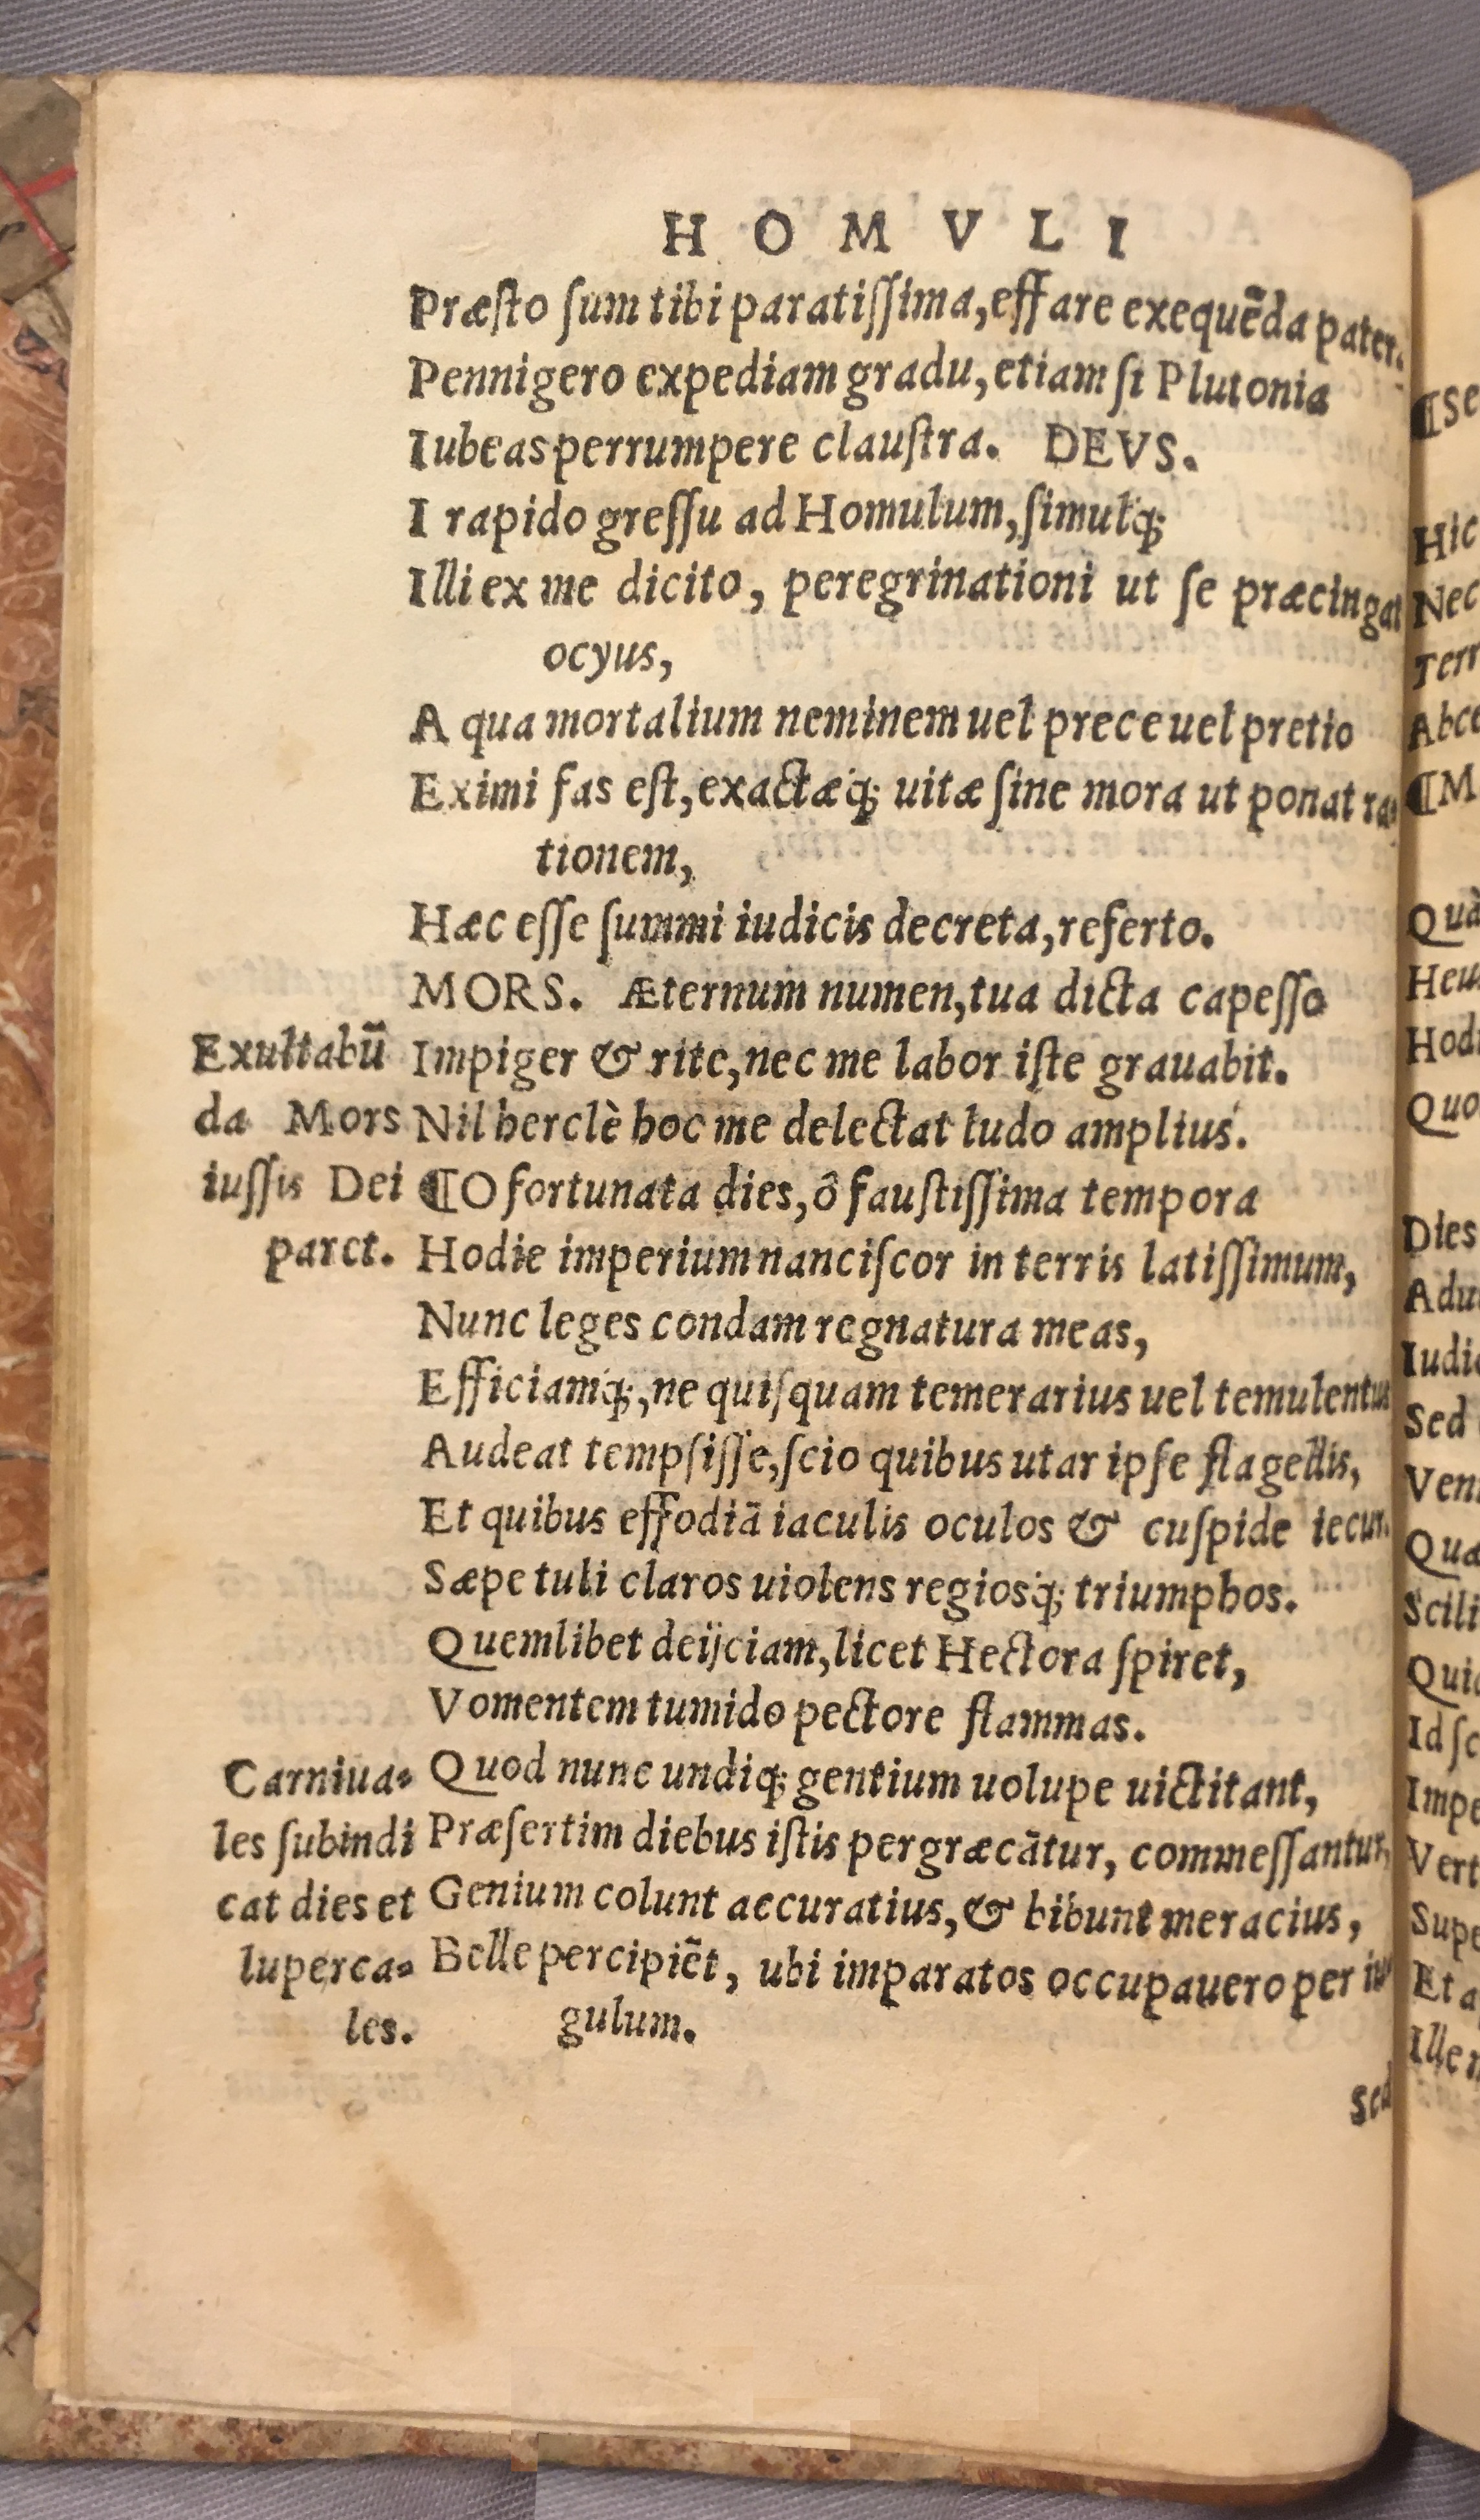 H O M V L I
Præſto ſum tibi paratiſſima, effare exequẽda pater.
Pennigero expediam gradu, etiam ſi Plutonia
Iubeas perrumpere clauſtra. DEVS.
I rapido greſſu ad Homulum, ſimulq́;
Illi ex me dicito, peregrinationi ut ſe præcingat
ocyus,
A qua mortalium neminem uel prece uel pretio
Eximi fas eſt, exactæq́; uitæ ſine mora ut ponat ra
tionem,
Hæc eſſe ſummi iudicis decreta, referto.
MORS. Æternum numen, tua dicta capeſſo
Impiger & rite, nec me labor iſte grauabit.
Nil herclè hoc me delectat ludo amplius.
¶O fortunata dies, ô fauſtiſſima tempora
Hodie imperium nanciſcor in terris latiſſimum,
Nunc leges condam regnatura meas,
Efficiamq́;, ne quiſquam temerarius uel temulentus
Audeat tempſiſſe, ſcio quibus utar ipſe flagellis,
Et quibus effodiã iaculis oculos & cuſpide iecur.
Sæpe tuli claros uiolens regiosq́; triumphos.
Quemlibet deijciam, licet Hectora ſpiret,
Vomentem tumido pectore flammas.
Quod nunc undiq; gentium uolupe uictitant,
Præſertim diebus iſtis pergræcãtur, commeſſantur,
Genium colunt accuratius, & bibunt meracius,
Belle percipiẽt, ubi imparatos occupauero per iu
gulum.
Sed
Exultabũ
da Mors
iuſſis Dei
paret.
Carniua⸗
les ſubindi
cat dies et
luperca⸗
les.
¶Se
Hic
Nec
Terr
Abce
¶M
Quà
Heu
Hodi
Quo
Dies
Adu
Iudic
Sed
Ven
Qua
Scili
Quid
Id ſc
Impe
Vert
Supe
Et a
Ille